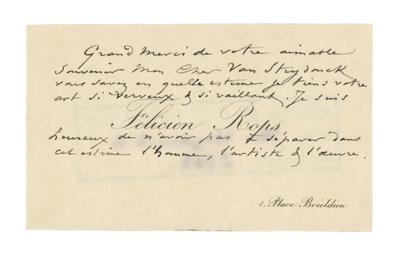 Grand Merci de votre aimable
souvenir Mon Cher Van Strydonck
vous savez en quelle estime je tiens votre
art si nerveux & si vaillant. Je suis
Félicien Rops
heureux de n'avoir pas à séparer dans
cet estime l'homme, l'artiste & l'œuvre.
1, Place Boieldieu